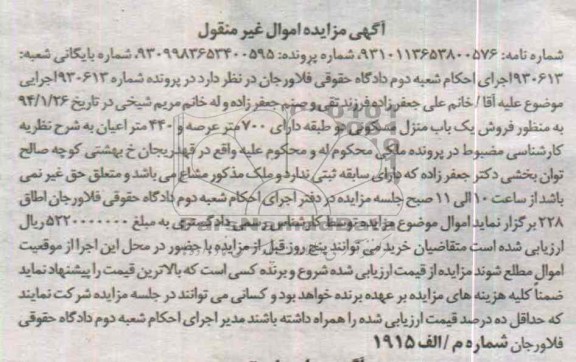 آگهی مزایده اموال غیر منقول
شماره نامه: ۹۳۱۰۱۱۳۶۵۳۸۰۰۵۷۶، شماره پرونده: ۹۳۰۹۹۸۳۶۵۳۴۰۰۵۹۵، شماره بایگانی شعبه:
۹۳۰۶۱۳اجرای احکام شعبه دوم دادگاه حقوقی فلاورجان در نظر دارد در پرونده شماره ۹۳۰۶۱۳اجرایی
موضوع علیه آقا / خانم علی جعفرزاده فرزند تقی و صنم جعفر زاده و له خانم مریم شیخی در تاریخ ۹۴/۱/۲۶
به منظور فروش یک باب منزل مسکونی دو طبقه دارای ۷۰۰متر عرصه و ۴۴۰ متر اعیان به شرح نظریه
کارشناسی مضبوط در پرونده ملکی محکوم له و محکوم علیه واقع در قهدریجان خ بهشتی کوچه صالح
توان بخشی دکتر جعفر زاده که دارای سابقه ثبتی ندارد و ملک مذکور مشاع می باشد و متعلق حق غیر نمی
باشد از ساعت ۱۰ الی ۱۱ صبح جلسه مزایده در دفتر اجرای احکام شعبه دوم دادگاه حقوقی فلاورجان اطاق
۲۲۸ برگزار نماید اموال موضوع مزایده توسط کارشناس رسمی دادگستری به مبلغ ۵۳۲۰۰۰۰۰۰۰ ریال
ارزیابی شده است متقاضیان خرید می توانند پنج روز قبل از مزایده با حضور در محل این اجرا از موقعیت
اموال مطلع شوند مزایده از قیمت ارزیابی شده شروع و برنده کسی است که بالاترین قیمت را پیشنهاد نماید
ضمناً کلیه هزینه های مزایده بر عهده برنده خواهد بود و کسانی می توانند در جلسه مزایده شرکت نمایند
که حداقل ده درصد قیمت ارزیابی شده را همراه داشته باشند مدیر اجرای احکام شعبه دوم دادگاه حقوقی
فلاورجان شماره م /الف ۱۹۱۵